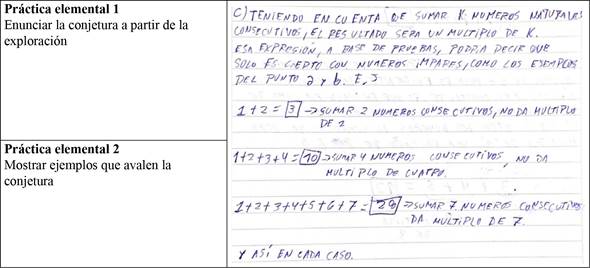 Práctica elemental 1
Enunciar la conjetura a partir de la
exploración
C) TENIENDO EN CUENTA QE SUMAR K NUMEROS NATURALES
CONSECUTIVOS, EL RESULTADO SERA UN MULTIPLO DE K.
ESA EXPRESIÓN, A BASE DE PRUEBAS, PODRA DECIR QUE
SOLO ES CIERTO CON NUMEROS IMPARES, COMO LOS EJEMPLOS
DEL PUNTO a y b. EJ
1+2 = 3 → SUMAR 2 NUMEROS CONSECUTIVOS, NO DA MULTIPLO
DE 2
Práctica elemental 2
Mostrar ejemplos que avalen la
conjetura
1+2+3+4 = 10 → SUMAR 4 NUMEROS CONSECUTIVOS, NO DA
MULTIPLO DE CUATRO.
1+2+3+4+5+6+7 = 28 → SUMAR 7 NUMEROS CONSECUTIVOS
DA MULTIPLO DE 7.
Y ASÍ EN CADA CASO.